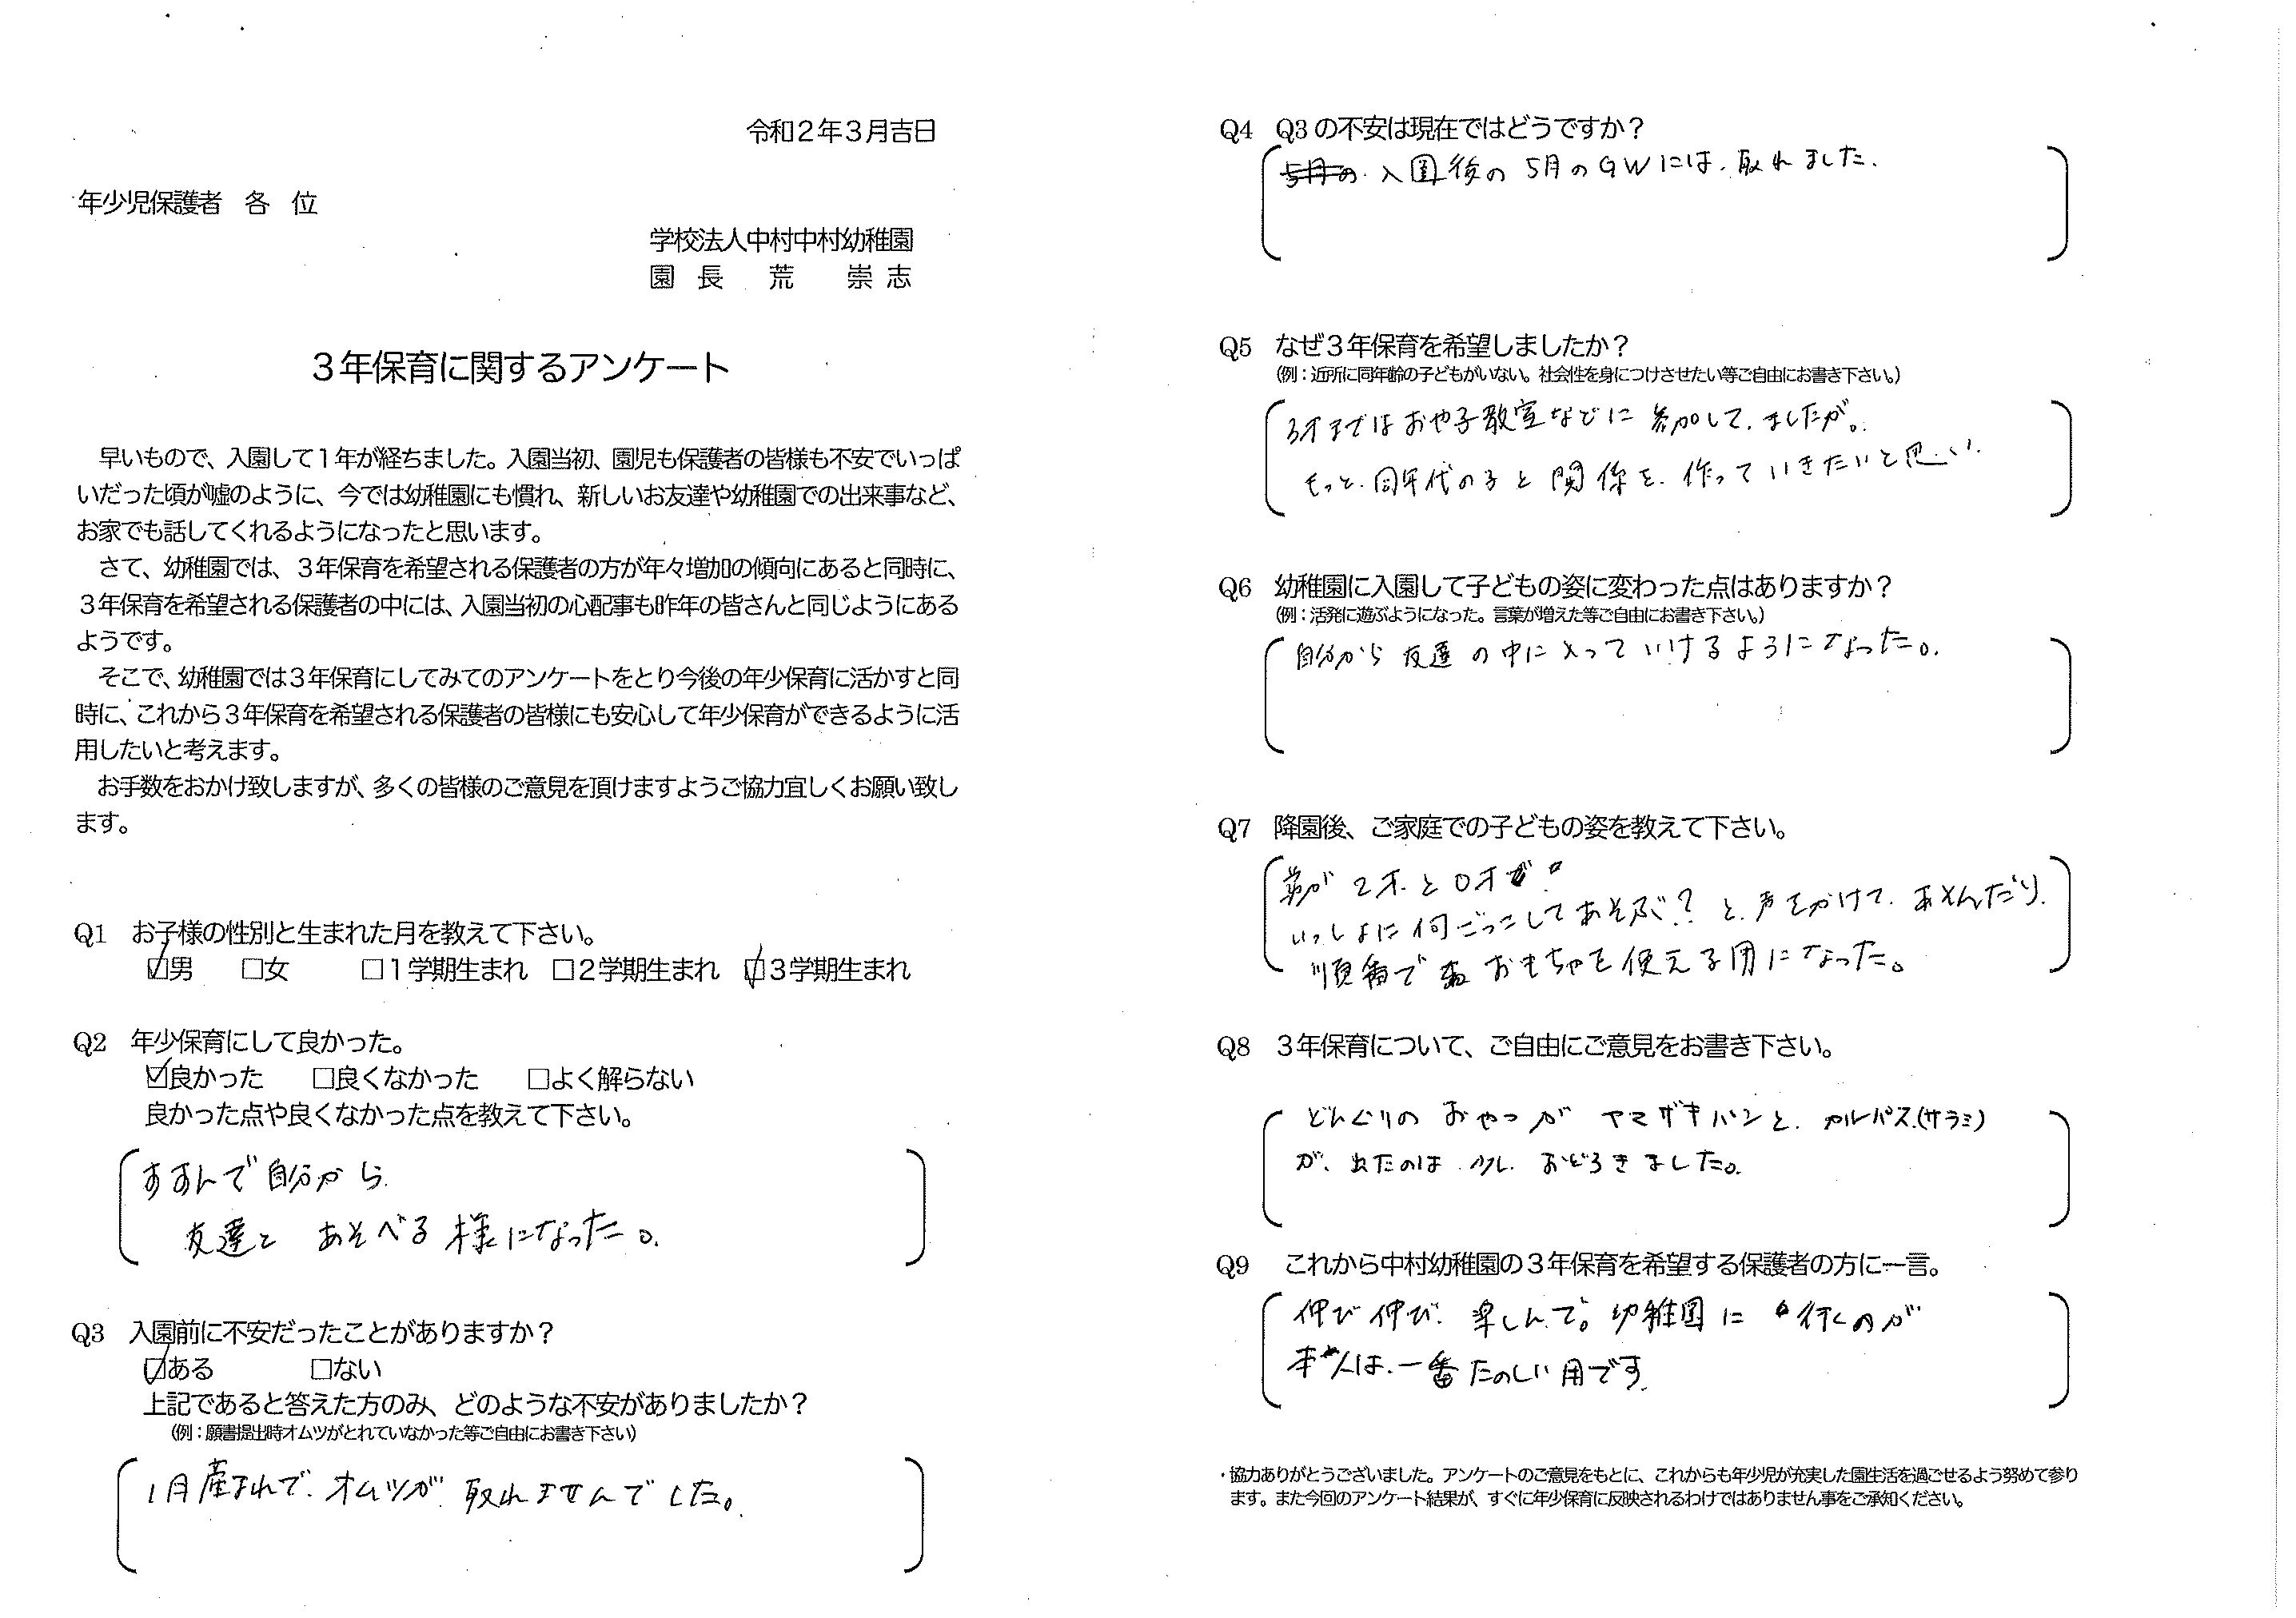 令和2年3月吉日
年少児保護者 各 位
学校法人中村中村幼稚園
園 長 荒 崇 志
3年保育に関するアンケート
早いもので、入園して1年が経ちました。入園当初、園児も保護者の皆様も不安でいっぱ
いだった頃が嘘のように、今では幼稚園にも慣れ、新しいお友達や幼稚園での出来事など、
お家でも話してくれるようになったと思います。
さて、幼稚園では、3年保育を希望される保護者の方が年々増加の傾向にあると同時に、
3年保育を希望される保護者の中には、入園当初の心配事も昨年の皆さんと同じようにある
ようです。
そこで、幼稚園では3年保育にしてみてのアンケートをとり今後の年少保育に活かすと同
時に、これから3年保育を希望される保護者の皆様にも安心して年少保育ができるように活
用したいと考えます。
お手数をおかけ致しますが、多くの皆様のご意見を頂けますようご協力宜しくお願い致し
ます。
Q1 お子様の性別と生まれた月を教えて下さい。
☑男 □女 □1学期生まれ □2学期生まれ ☑3学期生まれ
Q2 年少保育にして良かった。
☑良かった □良くなかった □よく解らない
良かった点や良くなかった点を教えて下さい。
すすんで自分から
友達と あそべる様になった。
Q3 入園前に不安だったことがありますか？
☑ある □ない
上記であると答えた方のみ、どのような不安がありましたか？
（例：願書提出時オムツがとれていなかった等ご自由にお書き下さい）
1月産まれで、オムツが取れませんでした。
Q4 Q3の不安は現在ではどうですか？
5月の 入園後の 5月のGWには、取れました。
Q5 なぜ3年保育を希望しましたか？
（例：近所に同年齢の子どもがいない。社会性を身につけさせたい等ご自由にお書き下さい。）
3才まではおや子教室などに参加して、ましたが。
もっと、同年代の子と関係を、作っていきたいと思い、
Q6 幼稚園に入園して子どもの姿に変わった点はありますか？
（例：活発に遊ぶようになった。言葉が増えた等ご自由にお書き下さい。）
自分から友達の中に入っていけるようになった。
Q7 降園後、ご家庭での子どもの姿を教えて下さい。
弟が2才と0才
いっしょに何ごっこしてあそぶ？と、声をかけて、あそんだり、
順番でおもちゃを使える用になった。
Q8 3年保育について、ご自由にご意見をお書き下さい。
どんぐりの おやつが ヤマザキパンと、カルパス（サラミ）
が、出たのは少し おどろきました。
Q9 これから中村幼稚園の3年保育を希望する保護者の方に一言。
伸び伸び、楽しんで。幼稚園に行くのが
本人は、一番たのしい用です。
・協力ありがとうございました。アンケートのご意見をもとに、これからも年少児が充実した園生活を過ごせるよう努めて参り
ます。また今回のアンケート結果が、すぐに年少保育に反映されるわけではありません事をご承知ください。